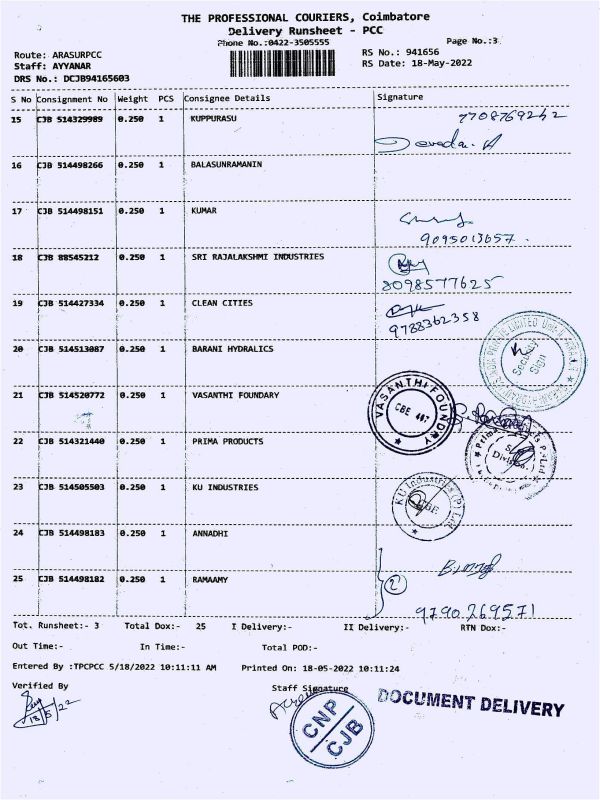 THE PROFESSIONAL COURIERS, Coimbatore
Delivery Runsheet - PCC
Phone No.:0422-3505555
Page No.:3
Route: ARASURPCC
RS No.: 941656
Staff: AYYANAR
RS Date: 18-May-2022
DRS No.: DCJB94165603
S No Consignment No Weight PCS Consignee Details Signature
15 CJB 514329989 0.250 1 KUPPURASU 7708769242
16 CJB 514498266 0.250 1 BALASUNRAMANIN
17 CJB 514498151 0.250 1 KUMAR
9095013657.
18 CJB 88545212 0.250 1 SRI RAJALAKSHMI INDUSTRIES
8098577625
19 CJB 514427334 0.250 1 CLEAN CITIES
9788362358
20 CJB 514513087 0.250 1 BARANI HYDRALICS
Security
Sign
21 CJB 514520772 0.250 1 VASANTHI FOUNDARY
VASANTHI FOUNDRY
CBE
22 CJB 514321440 0.250 1 PRIMA PRODUCTS
Prima
23 CJB 514505503 0.250 1 KU INDUSTRIES
KU Industries (P) Ltd
CBE
24 CJB 514498183 0.250 1 ANNADHI
25 CJB 514498182 0.250 1 RAMAAMY
2
9790269571
Tot. Runsheet:- 3 Total Dox:- 25 I Delivery:- II Delivery:- RTN Dox:-
Out Time:- In Time:- Total POD:-
Entered By :TPCPCC 5/18/2022 10:11:11 AM Printed On: 18-05-2022 10:11:24
Verified By Staff Signature
18/5/22
CNP
CJB
DOCUMENT DELIVERY